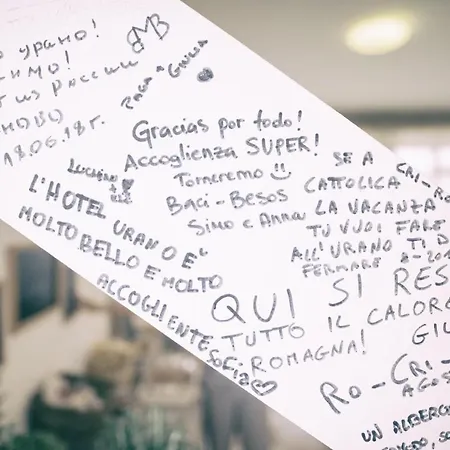 урано!
18.06.18г.
MB
Gracias por todo!
Accoglienza SUPER!
Torneremo
Baci-Besos
Simo e Anna
Luciano
L'HOTEL URANO E'
MOLTO BELLO E MOLTO
ACCOGLIENTE
SE A
CATTOLICA
LA VACANZA
TU VUOI FARE
ALL'URANO TI D
FERMARE
CRI-RO
QUI SI RES
TUTTO IL CALOR
ROMAGNA!
GIU
RO-CRI-
AGOS
UN ALBERG